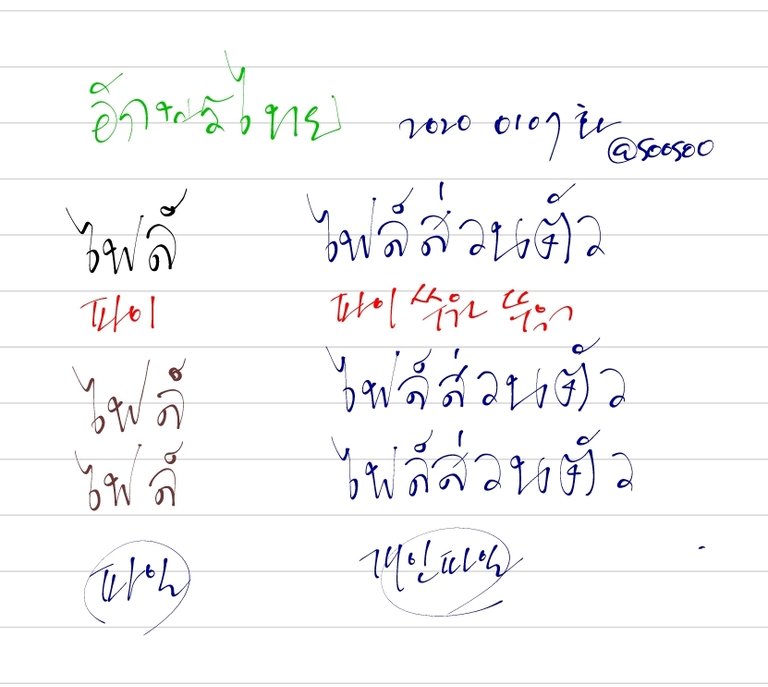 อักษรไทย 2020 0107 @soosoo
ไฟล์ ไฟล์ส่วนตัว
파이 파이
ไฟล์ ไฟล์ส่วนตัว
ไฟล์ ไฟล์ส่วนตัว
파일 개인파일